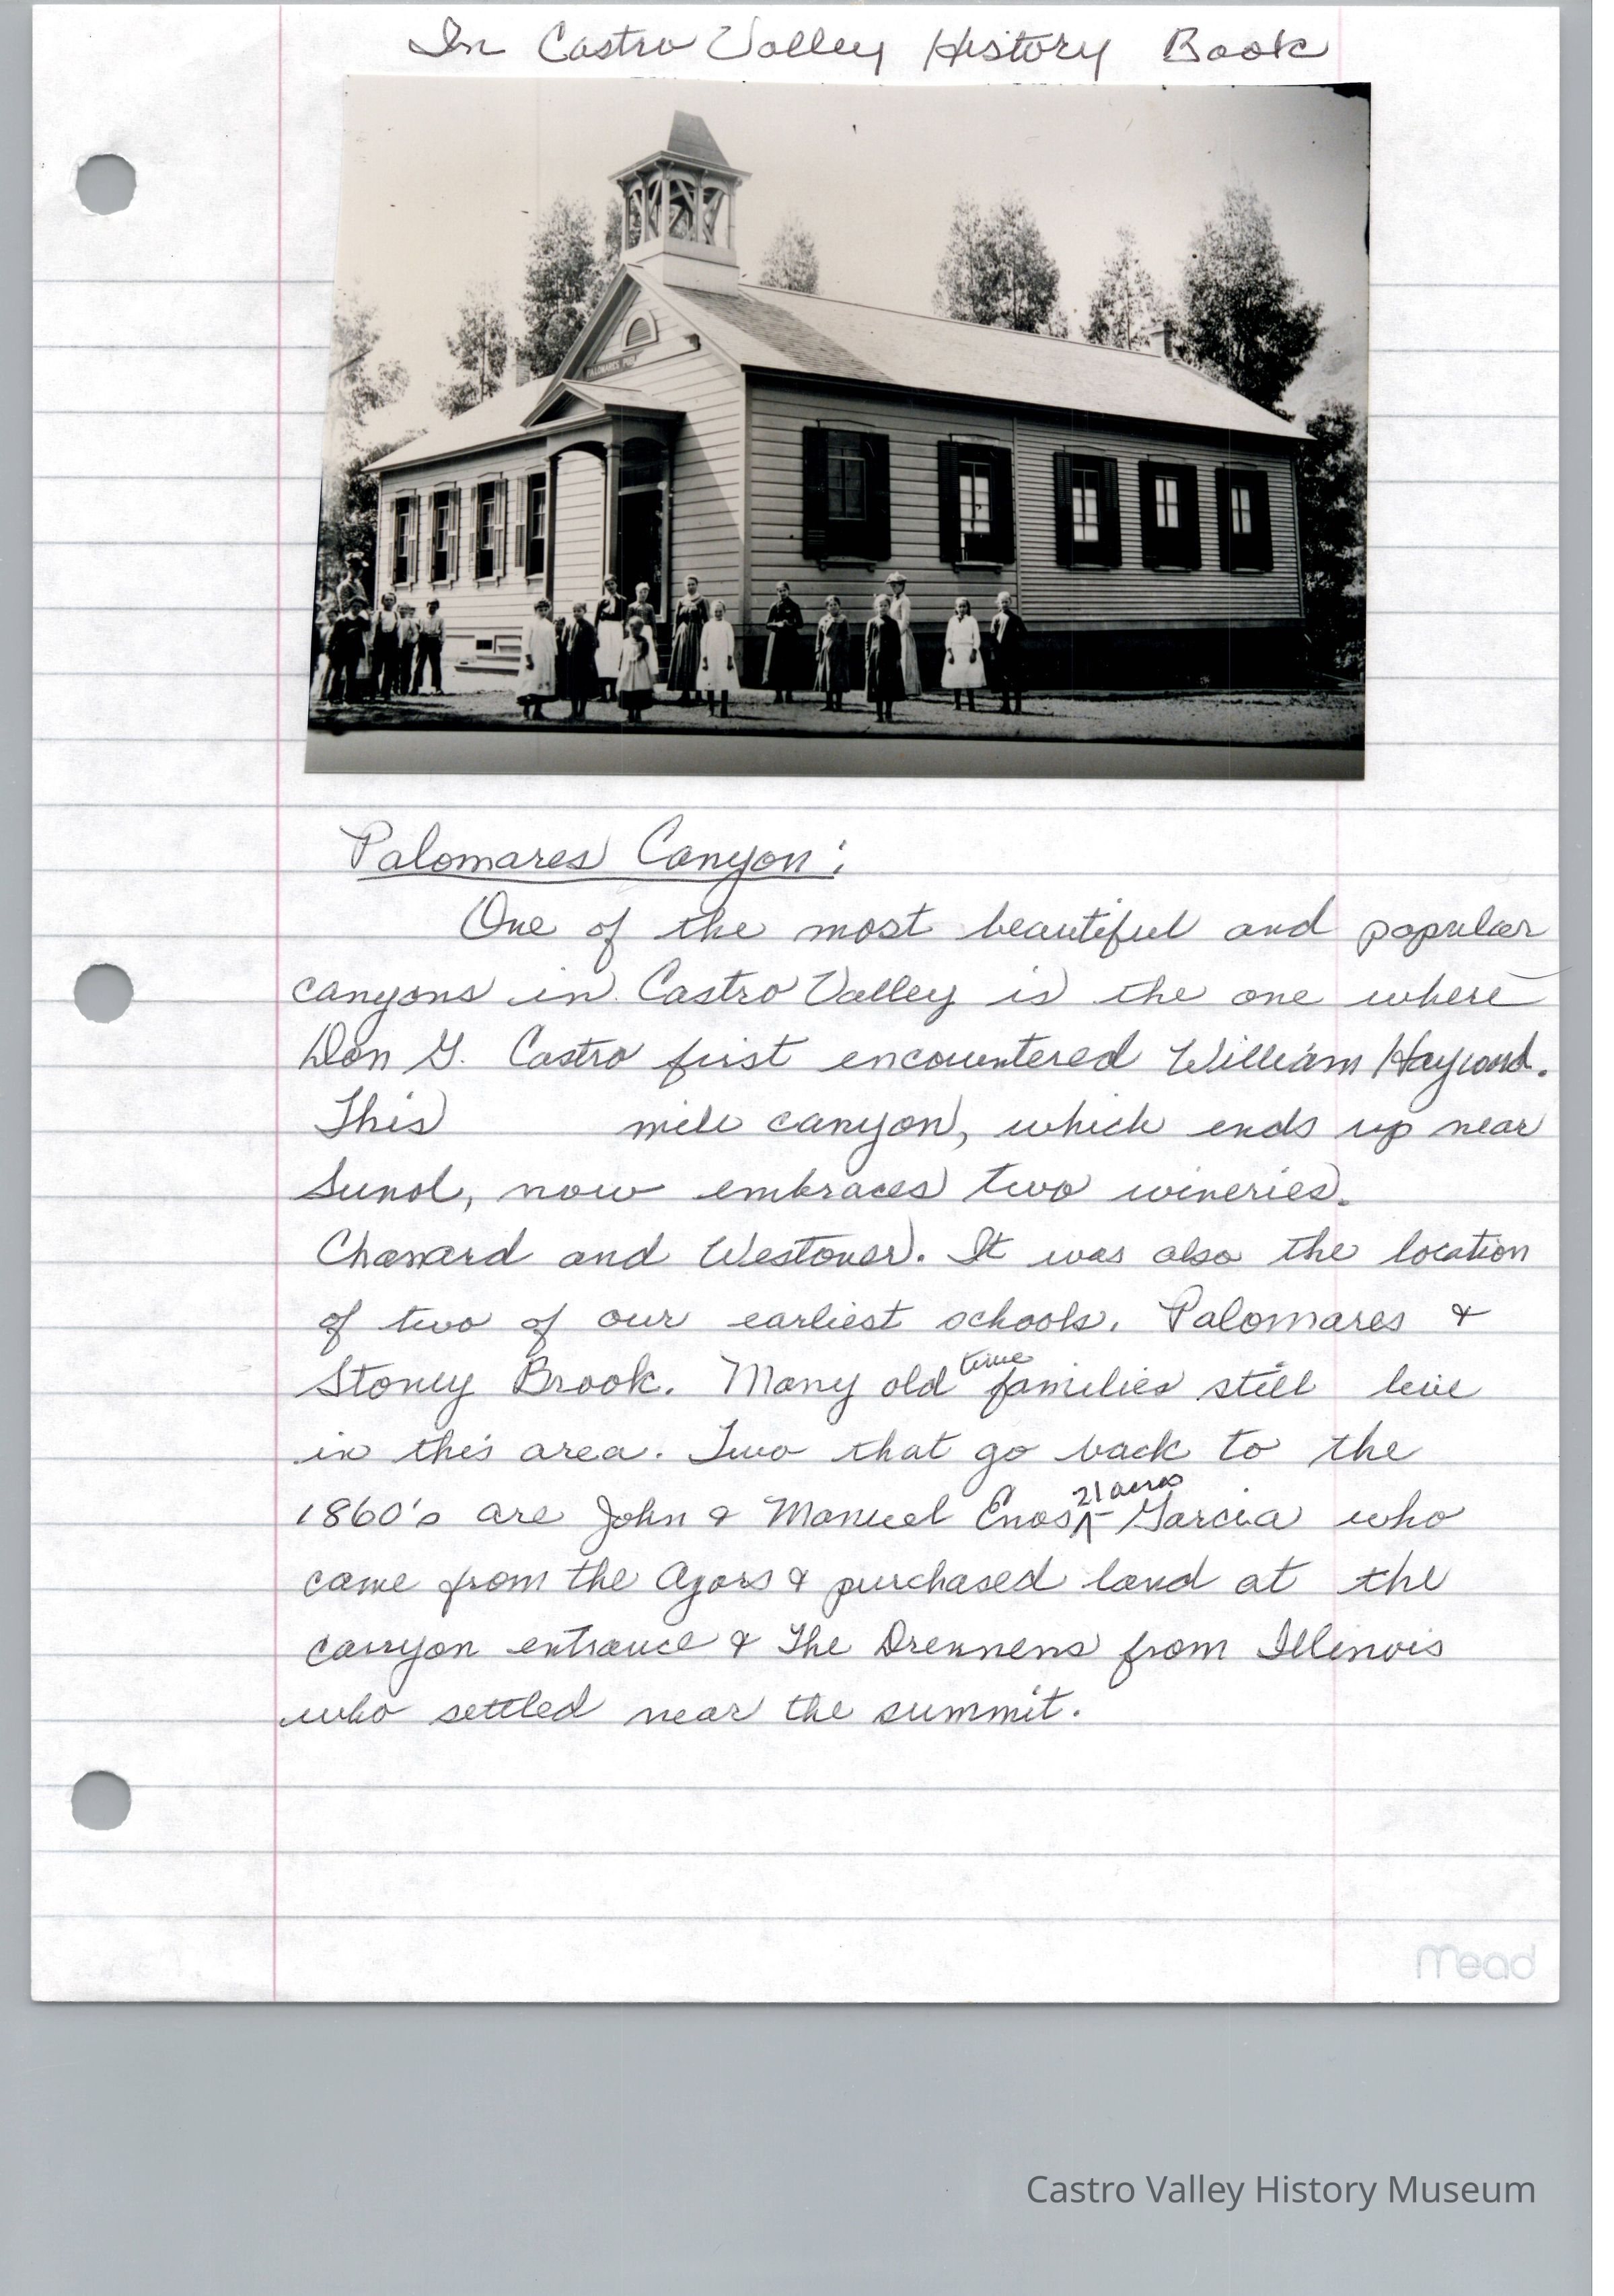 In Castro Valley History Book
PALOMARES
Palomares Canyon:
One of the most beautiful and popular
canyons in Castro Valley is the one where
Don G. Castro first encountered William Hayward.
This mile canyon, which ends up near
Sunol, now embraces two wineries.
Chanard and Westover. It was also the location
of two of our earliest schools. Palomares &
Stoney Brook. Many old time families still live
in this area. Two that go back to the
1860's are John & Manuel Enos 21 acres - Garcia who
came from the Azors & purchased land at the
canyon entrance & The Drennens from Illinois
who settled near the summit.
Mead
Castro Valley History Museum